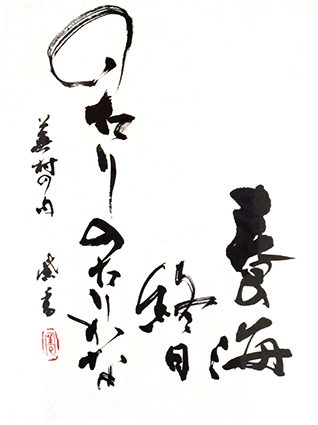 春の海
終日
のたりのたりかな
蕪村の句